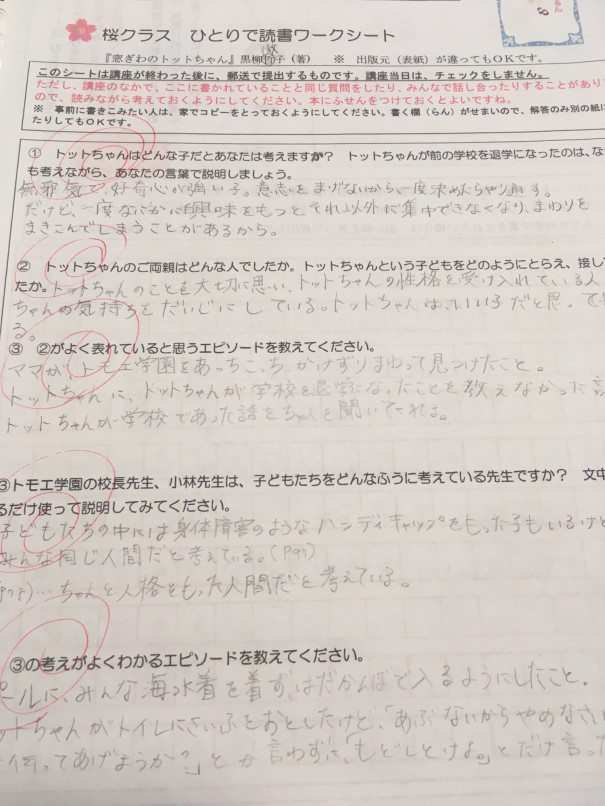 桜クラス ひとりで読書ワークシート
『窓ぎわのトットちゃん』黒柳徹子（著） ※ 出版元（表紙）が違ってもOKです。
このシートは講座が終わった後に、郵送で提出するものです。講座当日は、チェックをしません。
ただし、講座のなかで、ここに書かれていることと同じ質問をしたり、みんなで話し合ったりすることがあり
ので、読みながら考えておくようにしてください。本にふせんをつけておくとよいですね。
※ 事前に書きこみたい人は、家でコピーをとっておくようにしてください。書く欄（らん）がせまいので、解答のみ別の紙に
たりしてもOKです。
① トットちゃんはどんな子だとあなたは考えますか？ トットちゃんが前の学校を退学になったのは、な
も考えながら、あなたの言葉で説明しましょう。
無邪気で好奇心が強い子。意志をまげないから一度決めたらやり通す。
だけど、一度なにかに興味をもつとそれ以外に集中できなくなり、まわりを
まきこんでしまうことがあるから。
② トットちゃんのご両親はどんな人でしたか。トットちゃんという子どもをどのようにとらえ、接し
たか。トットちゃんのことを大切に思い、トットちゃんの性格を受け入れている人
ちゃんの気持ちをだいじにしている。トットちゃんは、いい子だと思
る。
③ ②がよく表れていると思うエピソードを教えてください。
ママが、トモエ学園をあっちこっちかけずりまわって見つけたこと。
トットちゃんに、トットちゃんが学校を退学になったことを教えなかった
トットちゃんが学校であった話をちゃんと聞いてくれる。
③トモエ学園の校長先生、小林先生は、子どもたちをどんなふうに考えている先生ですか？ 文中
るだけ使って説明してみてください。
子どもたちの中には身体障害のようなハンディキャップをもった子もいるけど
みんな同じ人間だと考えている。
…ちゃんと人格をもった人間だと考えている。
③の考えがよくわかるエピソードを教えてください。
プールに、みんな海水着を着ず、はだかんぼで入るようにしたこと。
ットちゃんがトイレにさいふをおとしたけど、「あぶないからやめなさい
ってあげようか？」とか言わずに、「もどしとけよ。」とだけ言った